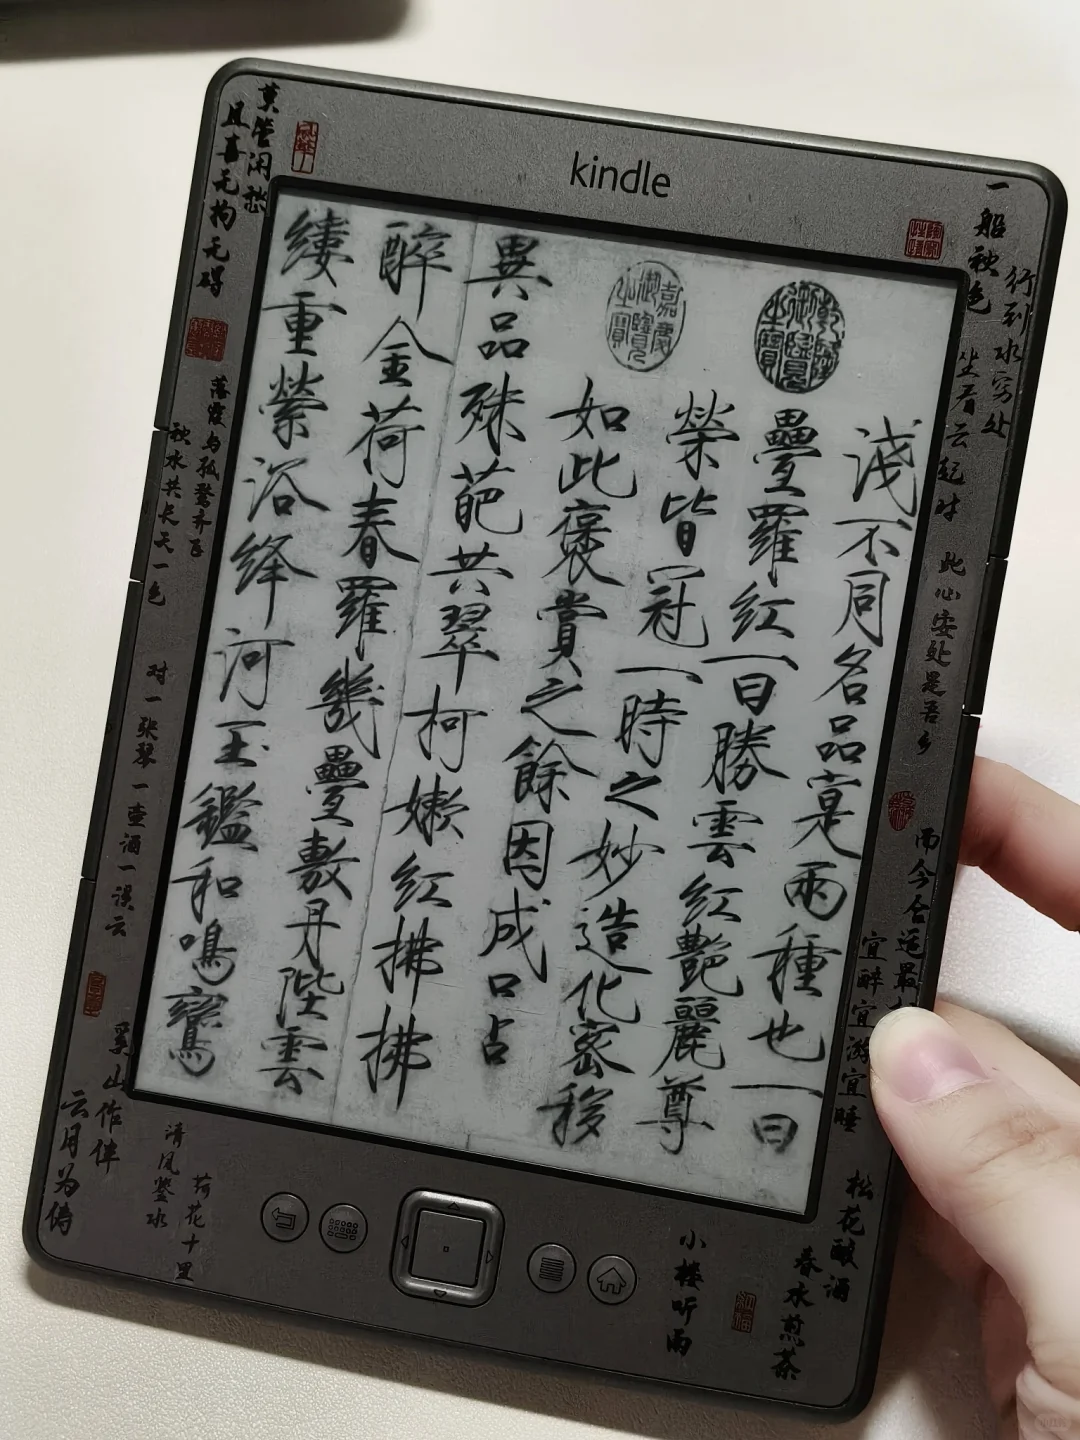 kindle
莫管闲愁
且喜无拘无碍
一船秋色
行到水穷处
坐看云起时
此心安处是吾乡
而今何事最
宜醉宜游宜睡
乾隆御覽之寶
嘉慶御覽之寶
淺不同名品寔兩種也一曰
疊羅紅一曰勝雲紅艷麗尊
榮皆冠一時之妙造化密移
如此褒賞之餘因成口占
異品殊葩共翠柯嫩紅拂拂
醉金荷春羅幾疊敷丹陛雲
縷重縈浴絳河玉鑑和鳴鸞
落霞与孤鹜齐飞
秋水共长天一色
对一张琴一壶酒一溪云
溪山作伴
云月为俦
荷花十里
清风鉴水
小楼听雨
松花酿酒
春水煎茶